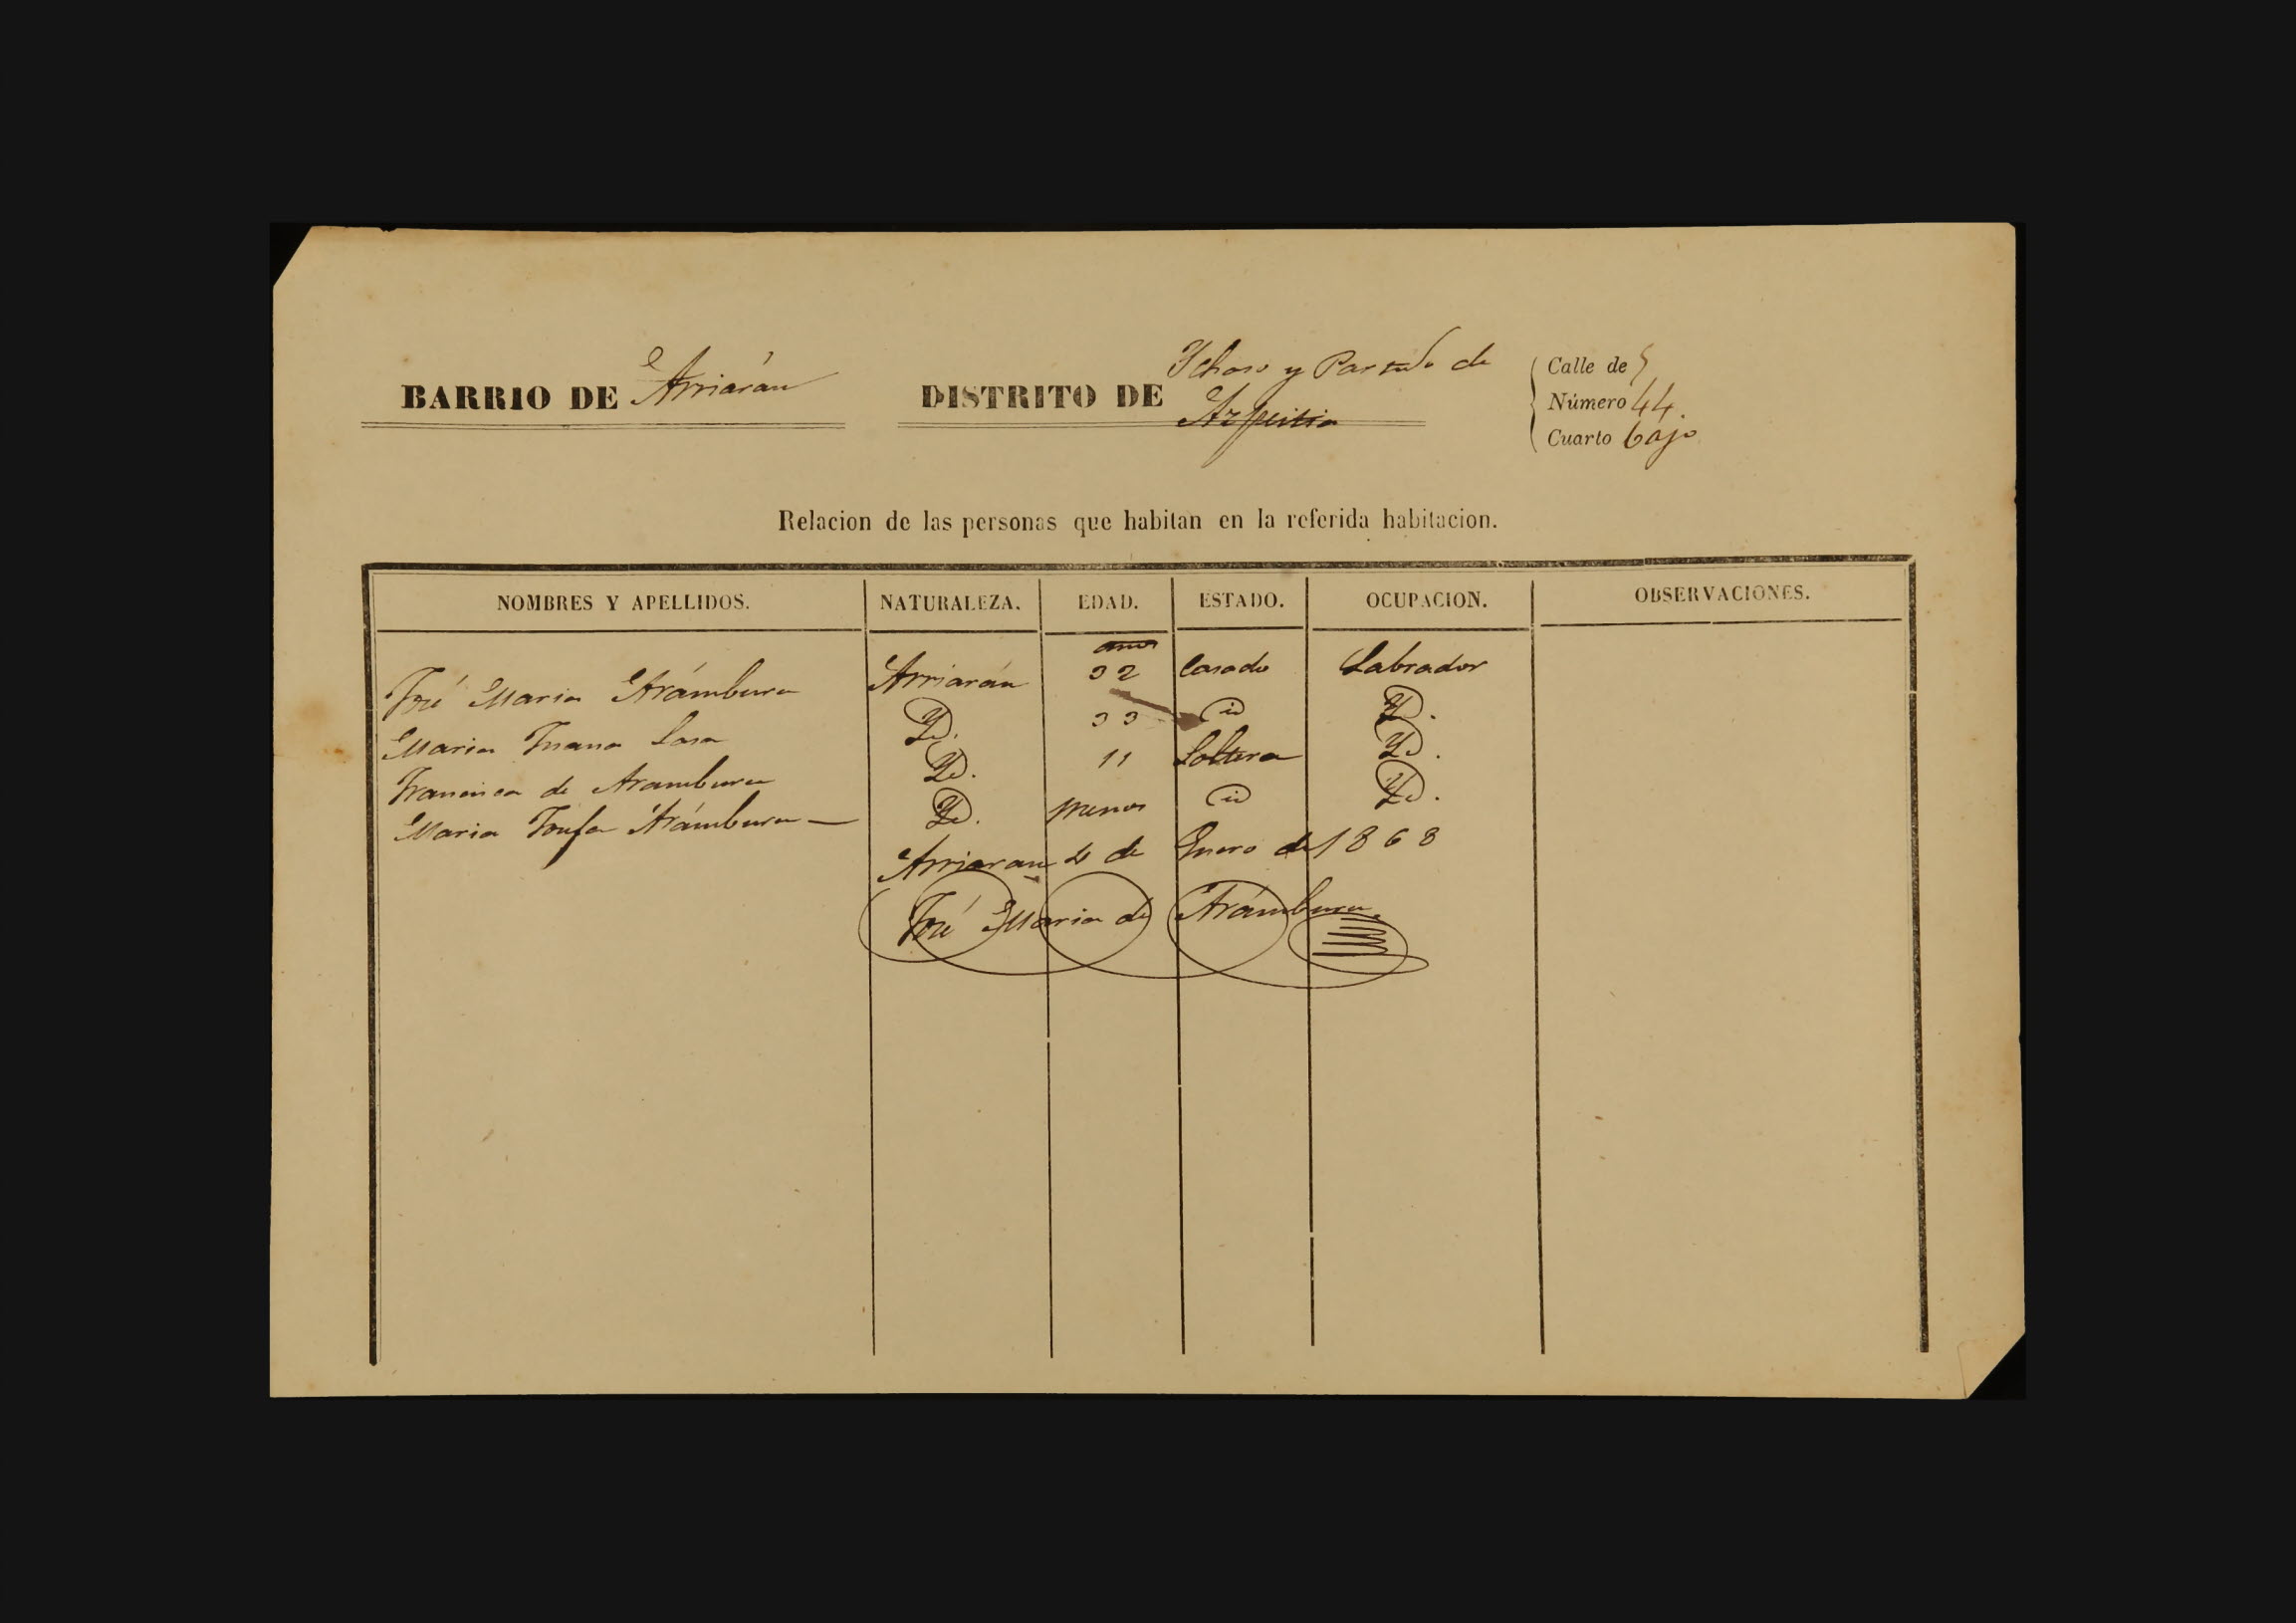 BARRIO DE Arriarán
DISTRITO DE Ichaso y Partido de
Azpeitia
Calle de
Número 44.
Cuarto bajo
Relacion de las personas que habitan en la referida habitacion.
NOMBRES Y APELLIDOS. NATURALEZA. EDAD. ESTADO. OCUPACION. OBSERVACIONES.
años
José Maria Arámburu Arriarán 32 Casado Labrador
Maria Juana Lasa Yd. 33 id Yd.
Francisca de Aramburu Yd. 11 Soltera Yd.
Maria Josefa Arámburu — Yd. menor id Yd.
Arriaran 4 de Enero de 1868
José Maria de Arámburu